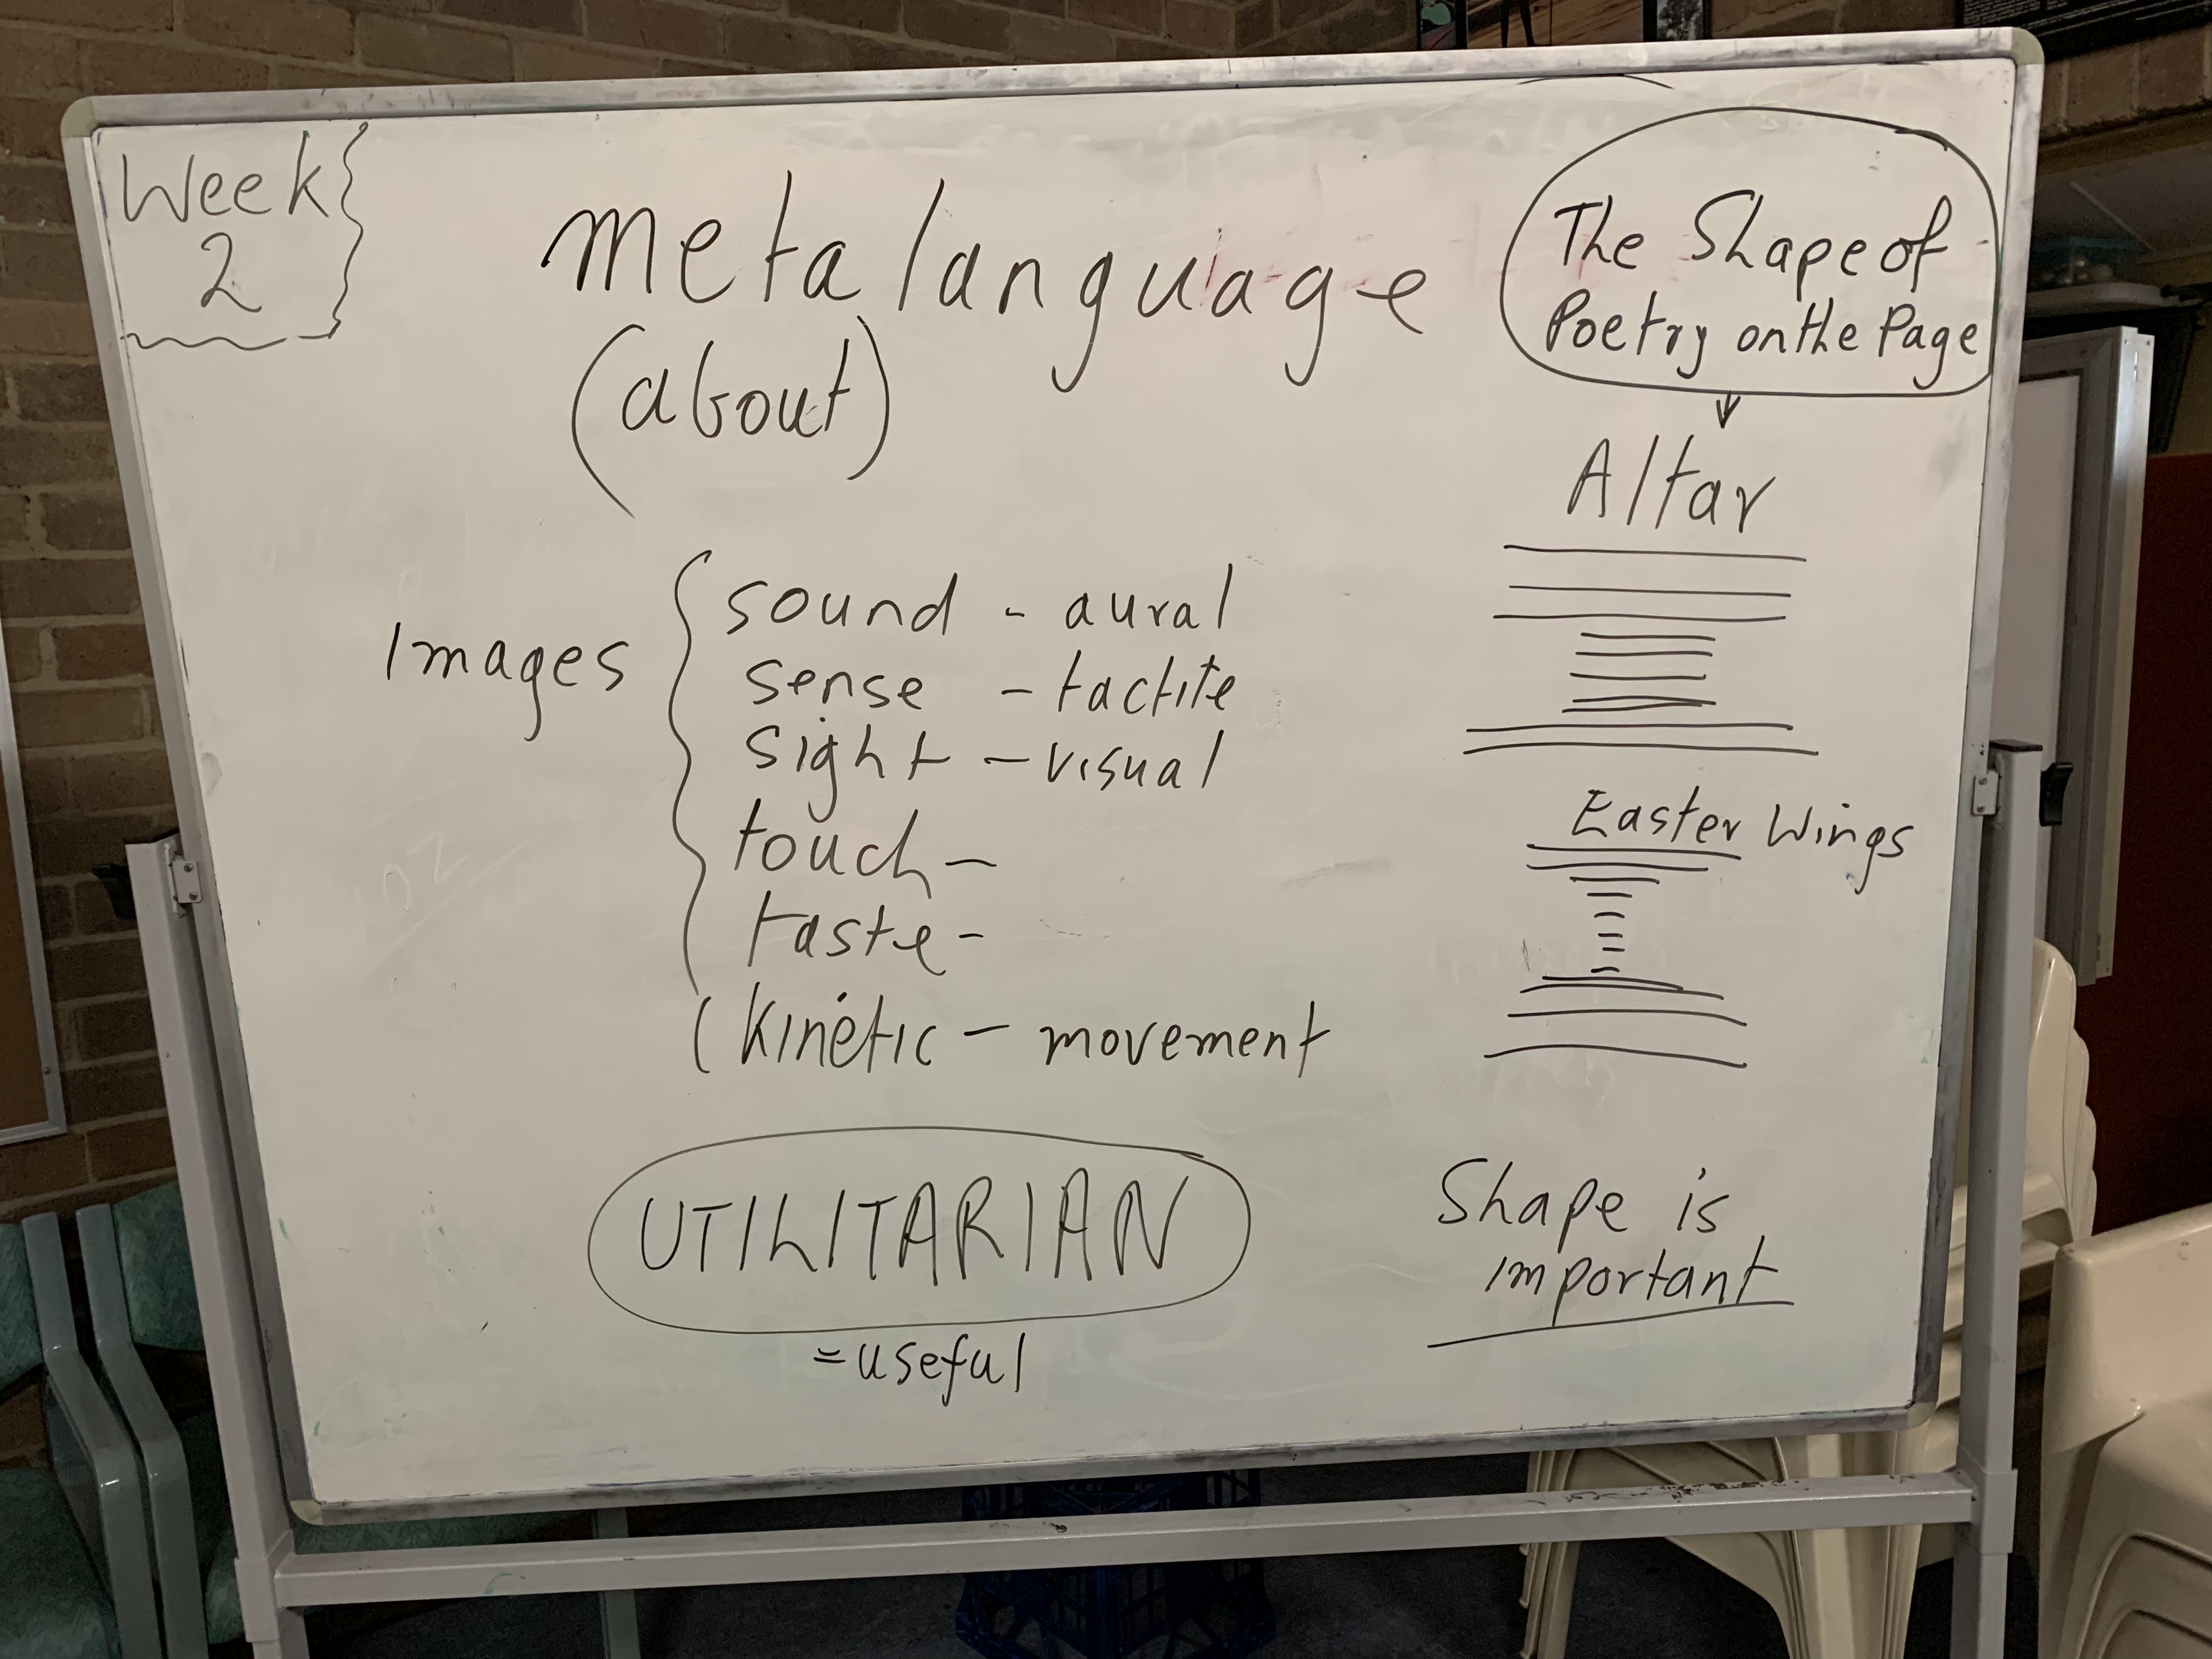 Week
2
meta language
(about)
Images
sound - aural
sense - tactite
sight - visual
touch -
taste -
(kinetic - movement
UTILITARIAN
= useful
The Shape of
Poetry on the Page
Altar
Easter Wings
Shape is
important